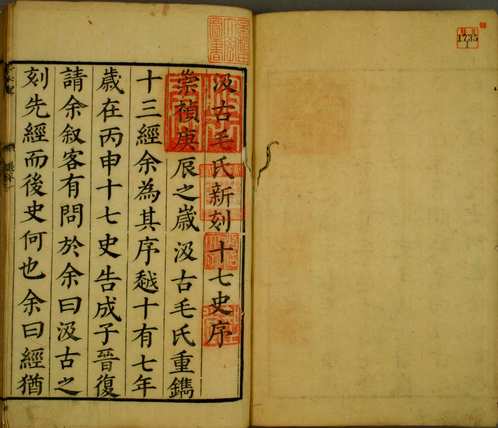 汲古毛氏新刻十七史序
崇禎庚辰之嵗汲古毛氏重鐫
十三經余為其序越十有七年
歲在丙申十七史告成子晉復
請余叙客有問於余曰汲古之
刻先經而後史何也余曰經猶
1735
1